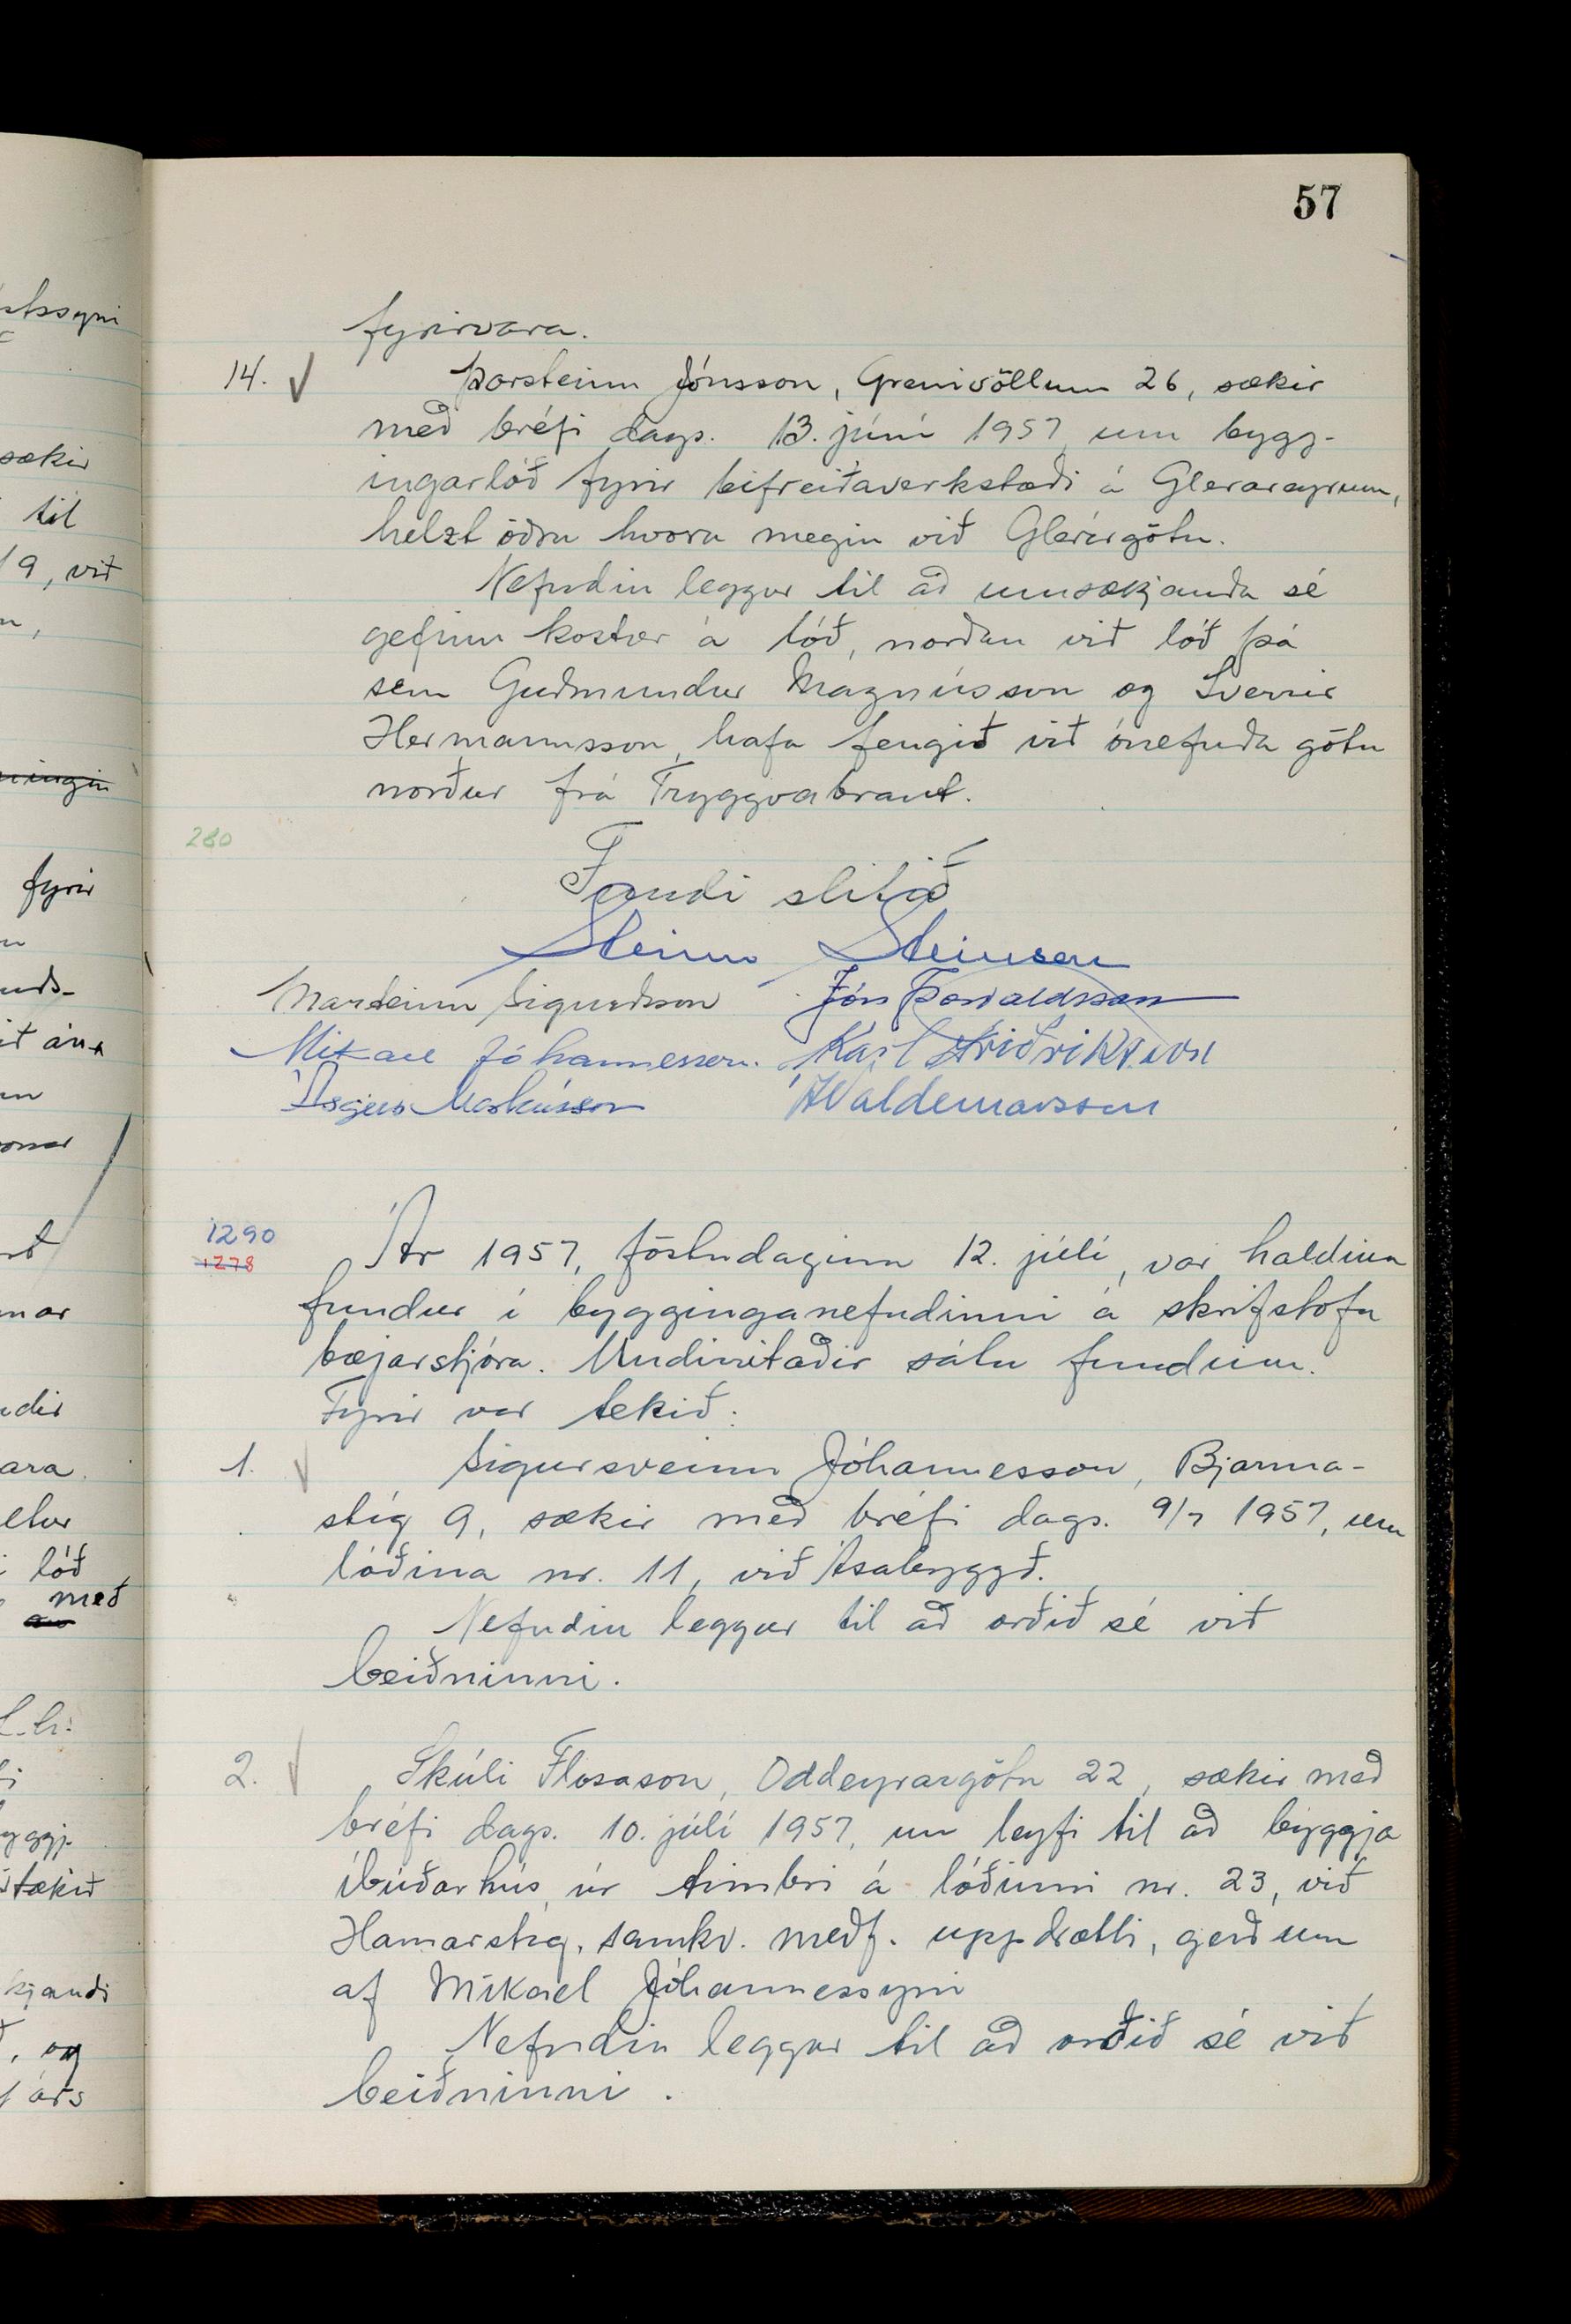 57
fyrirvara.
14. Þorsteinn Jónsson, Grenivöllum 26, sækir
með bréfi dags. 13. júní 1957, um bygg-
ingarlóð fyrir bifreiðaverkstæði á Gleráreyrum,
helzt öðru hvoru megin við Glerárgötu.
Nefndin leggur til að umsækjanda sé
gefinn kostur á lóð, norðan við lóð þá
sem Guðmundur Magnússon og Sverrir
Hermannsson, hafa fengið við ónefnda götu
norður frá Tryggvabraut.
280
Fundi slitið
Steinn Steinsen
Marteinn Sigurðsson Jón Þorvaldsson
Mikael Jóhannesson. Karl Friðriksson
Ásgeir Markússon ÁValdemarsson
1290
1278
Ár 1957, föstudaginn 12. júlí, var haldinn
fundur í bygginganefndinni á skrifstofu
bæjarstjóra. Undirritaðir sátu fundinn.
Fyrir var tekið:
1. Sigursveinn Jóhannesson, Bjarma-
stíg 9, sækir með bréfi dags. 9/7 1957, um
lóðina nr. 11, við Ásabyggð.
Nefndin leggur til að orðið sé við
beiðninni.
2. Skúli Flosason, Oddeyrargötu 22, sækir með
bréfi dags. 10. júlí 1957, um leyfi til að byggja
íbúðarhús úr timbri á lóðinni nr. 23, við
Hamarstíg, samkv. meðf. uppdrætti, gerðum
af Mikael Jóhannessyni
Nefndin leggur til að orðið sé við
beiðninni.